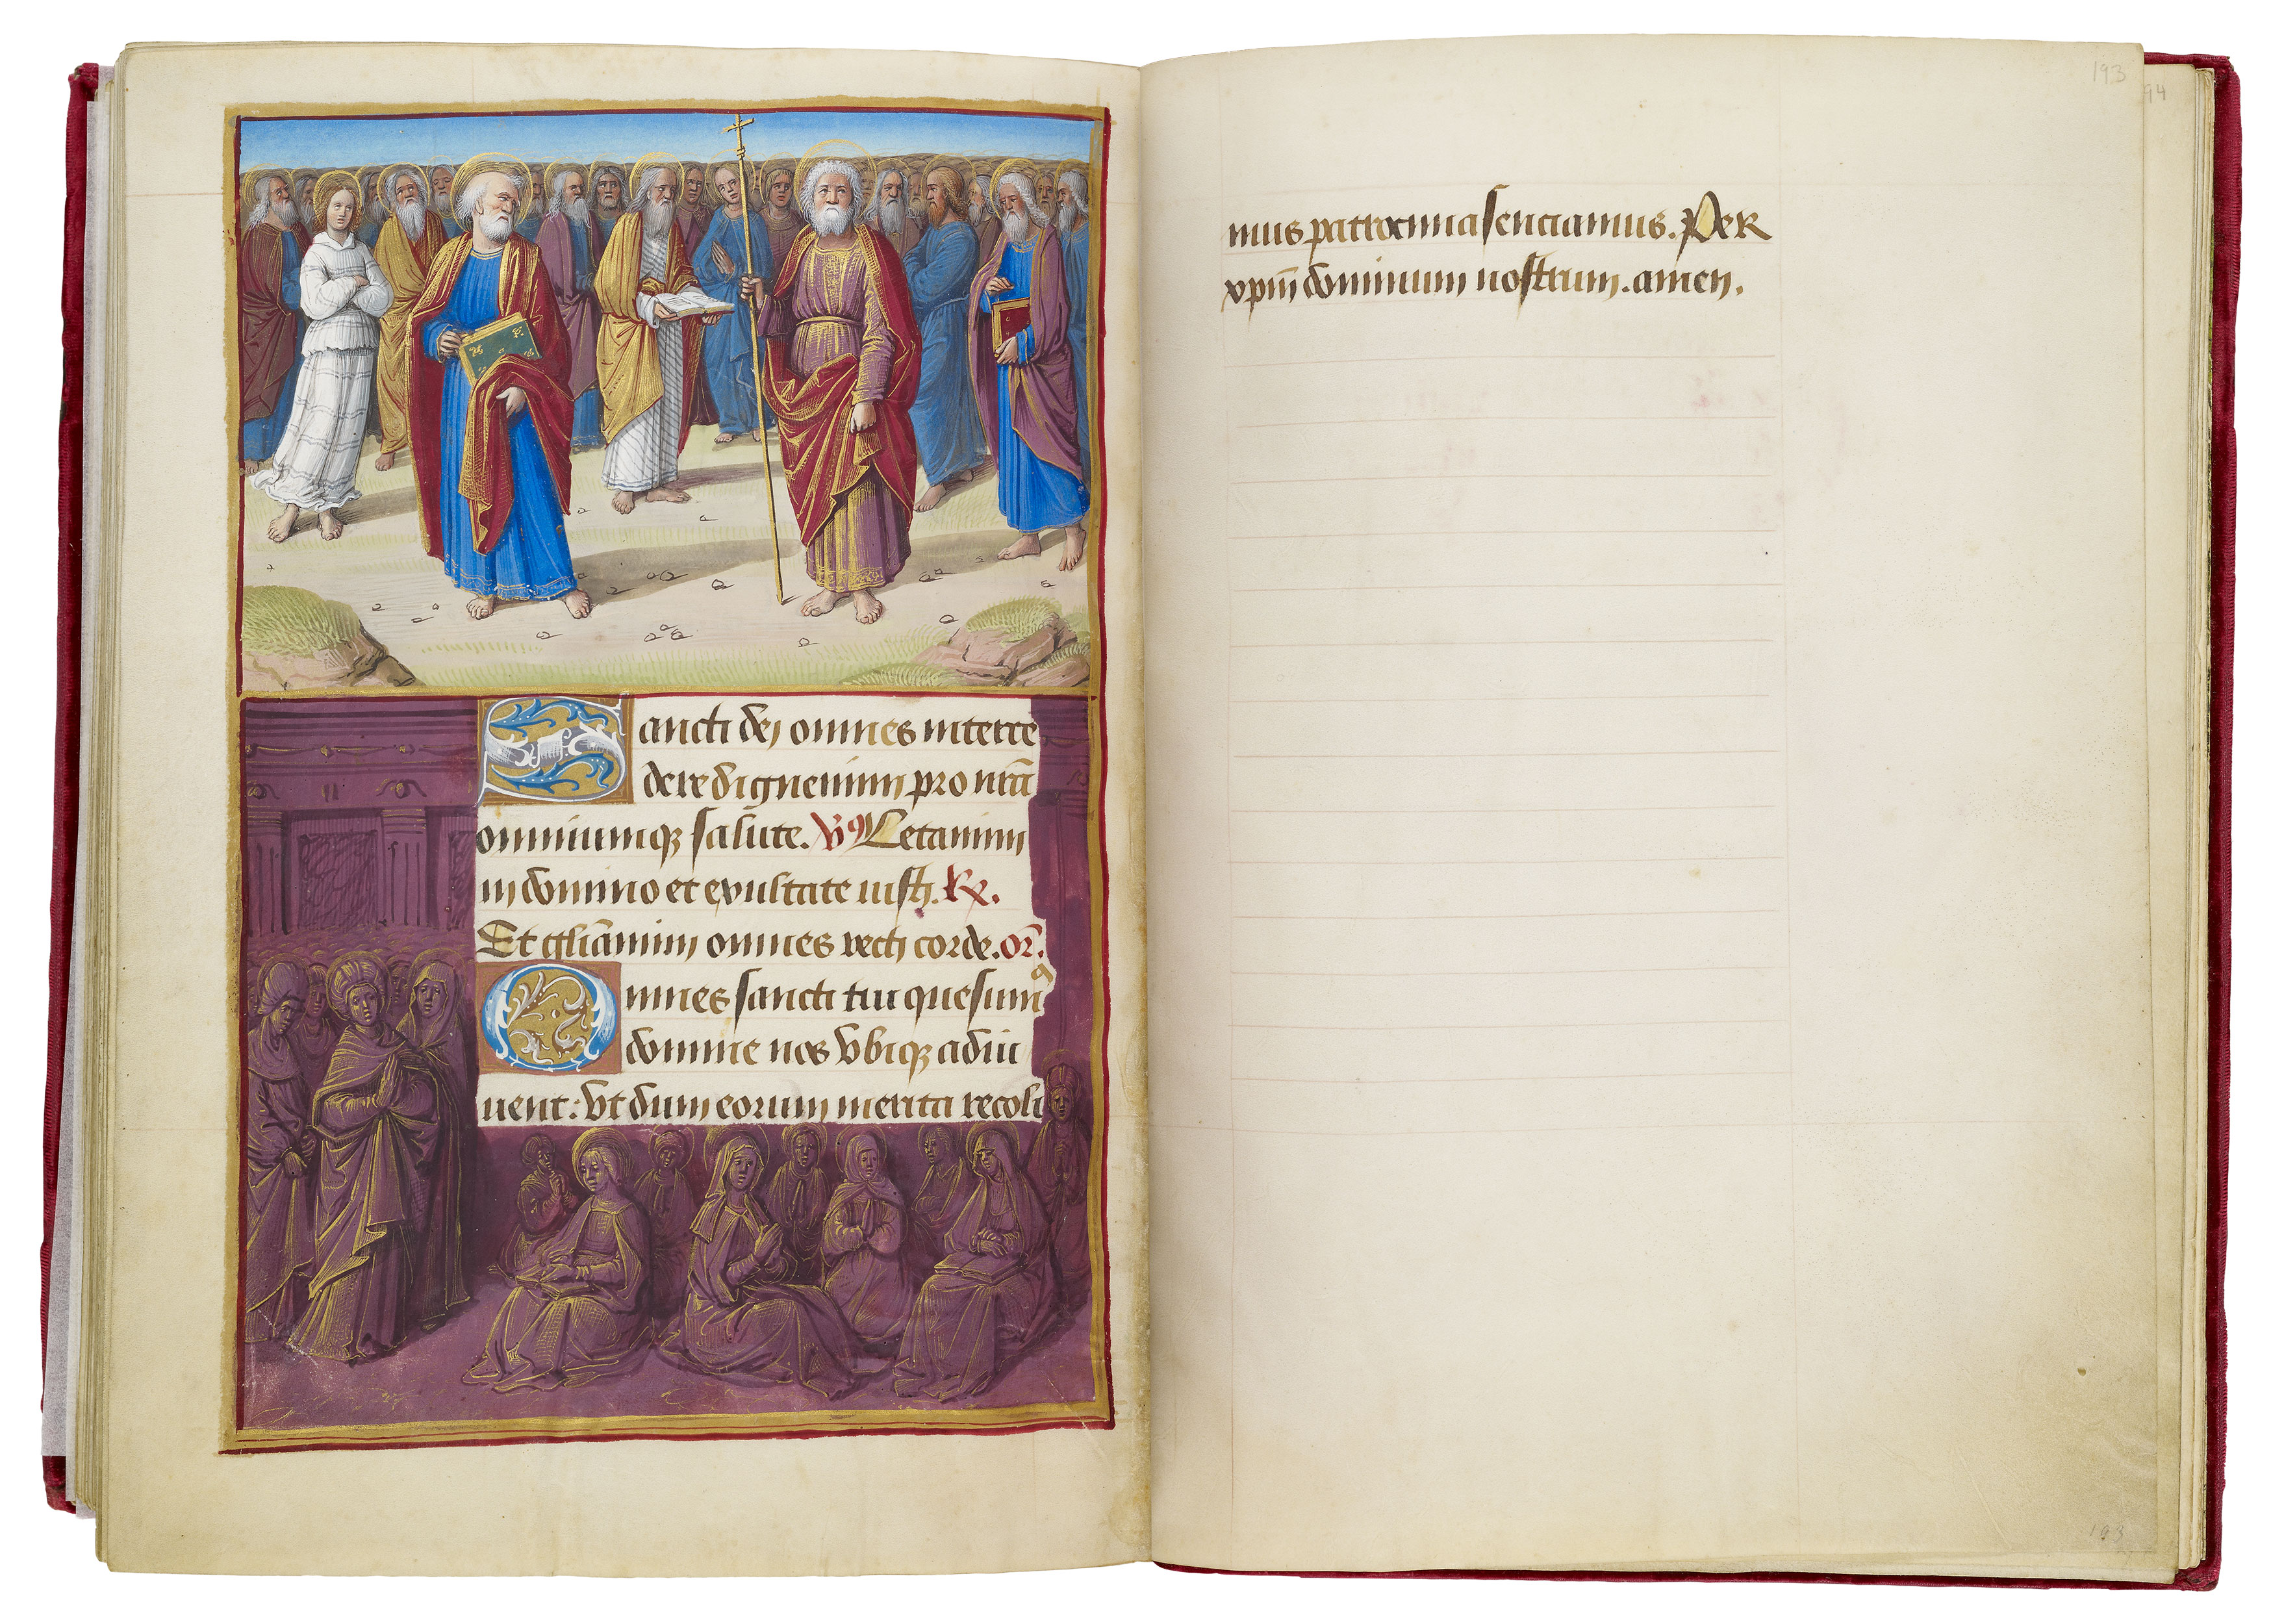 Sancti dei omnes interce
dere dignemini pro nr̄a
omniumqꝫ salute. V̸ꝰ Letamini
in domino et exultate iusti. R̸.
Et gl̄iamini omnes recti corde. or̄.
Omnes sancti tui quesumꝰ
domine nos vbiqꝫ adiu
uent: vt dum eorum merita recoli
mus patrocinia senciamus. Per
xp̄m dominum nostrum. amen.
193
94
193